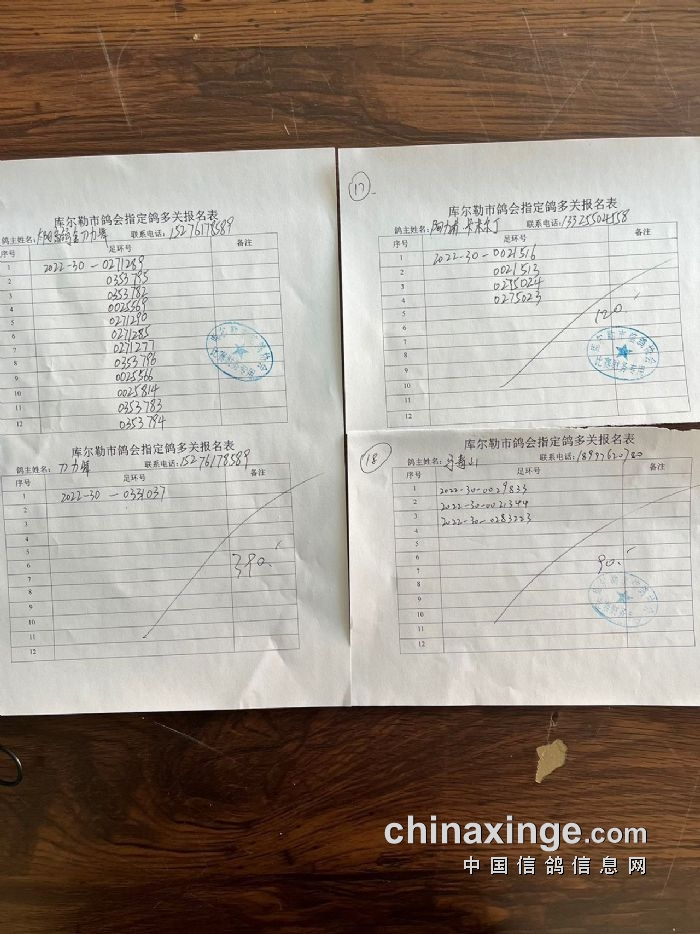 库尔勒市鸽会指定鸽多关报名表
鸽主姓名: 联系电话:15276178589
序号 足环号 备注
1 2022-30-0271289
2 0353785
3 0353782
4 0025569
5 0271290
6 0271285
7 0271277
8 0353796
9 0025566
10 0025814
11 0353783
12 0353794
库尔勒市鸽会指定鸽多关报名表
鸽主姓名: 刀力 联系电话:15276178589
序号 足环号 备注
1 2022-30-0331037
2
3
4
5
6 390.
7
8
9
10
11
12
17
库尔勒市鸽会指定鸽多关报名表
鸽主姓名: 联系电话:13325504558
序号 足环号 备注
1 2022-30-0021516
2 0021513
3 0275024
4 0275023
5 120.
6
7
8
9
10
11
12
18
库尔勒市鸽会指定鸽多关报名表
鸽主姓名: 联系电话:18997620780
序号 足环号 备注
1 2022-30-0029833
2 2022-30-0021344
3 2022-30-0283223
4
5
6 90.
7
8
9
10
11
12
chinaxinge.com
中国信鸽信息网